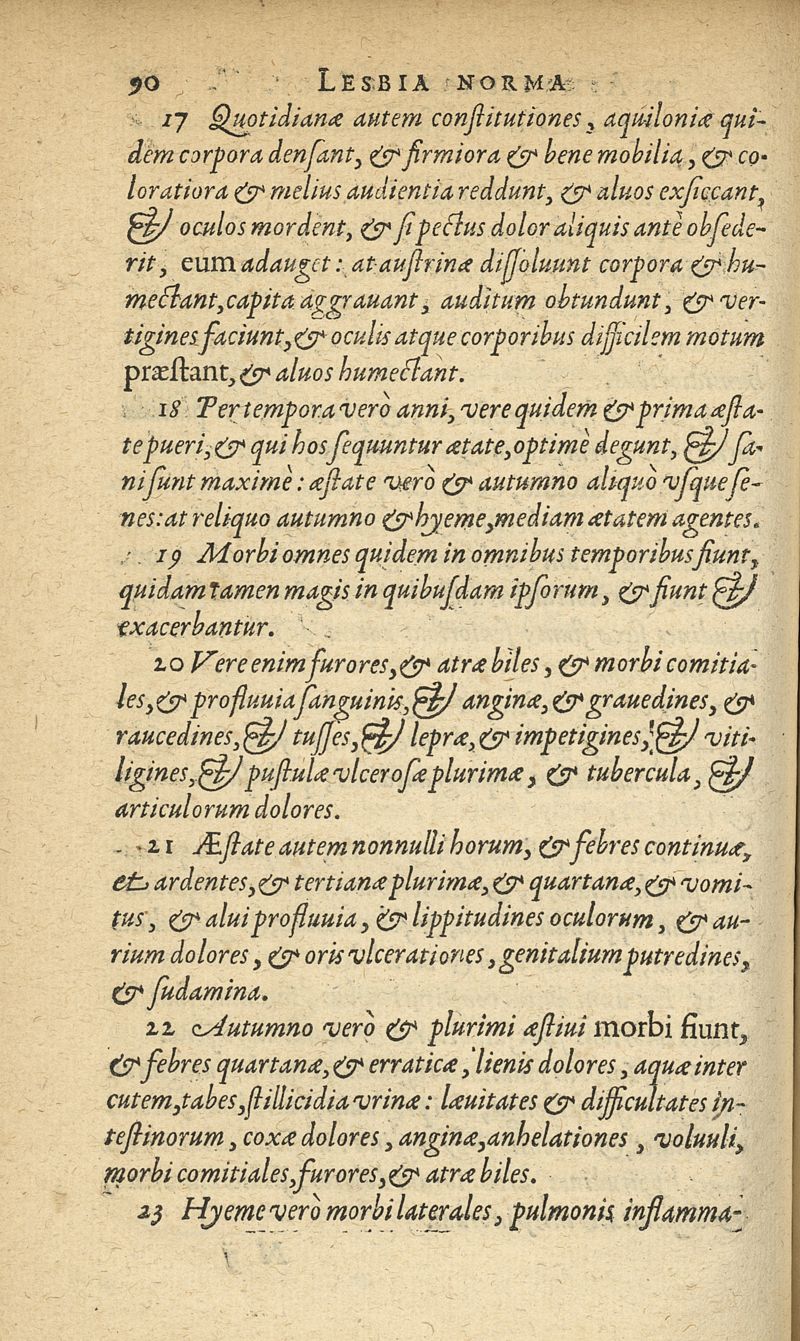 90 LESBIA NORMA
17 Quotidianæ autem conſtitutiones, aquiloniæ qui-
dem corpora denſant, & firmiora & bene mobilia, & co-
loratiora & melius audientia reddunt, & aluos exſiccant,
& oculos mordent, & ſi pectus dolor aliquis antè obſede-
rit, eum adauget: at auſtrinæ diſſoluunt corpora & hu-
mectant, capita aggrauant, auditum obtundunt, & ver-
tigines faciunt, & oculis atque corporibus difficilem motum
præſtant, & aluos humectant.
18 Per tempora verò anni, vere quidem & prima æſta-
te pueri, & qui hos ſequuntur ætate, optimè degunt, & ſa-
ni ſunt maximè: æſtate verò & autumno aliquò vſque ſe-
nes: at reliquo autumno & hyeme, mediam ætatem agentes.
19 Morbi omnes quidem in omnibus temporibus fiunt,
quidam tamen magis in quibuſdam ipſorum, & fiunt &
exacerbantur.
20 Vere enim furores, & atræ biles, & morbi comitia-
les, & profluuia ſanguinis, & anginæ, & grauedines, &
raucedines, & tuſſes, & lepræ, & impetigines, & viti-
ligines, & puſtulæ vlceroſæ plurimæ, & tubercula, &
articulorum dolores.
21 Æſtate autem nonnulli horum, & febres continuæ,
et ardentes, & tertianæ plurimæ, & quartanæ, & vomi-
tus, & alui profluuia, & lippitudines oculorum, & au-
rium dolores, & oris vlcerationes, genitalium putredines,
& ſudamina.
22 Autumno verò & plurimi æſtiui morbi fiunt,
& febres quartanæ, & erraticæ, lienis dolores, aquæ inter
cutem, tabes, ſtillicidia vrinæ: læuitates & difficultates in-
teſtinorum, coxæ dolores, anginæ, anhelationes, voluuli,
morbi comitiales, furores, & atræ biles.
23 Hyeme verò morbi laterales, pulmonis inflamma-